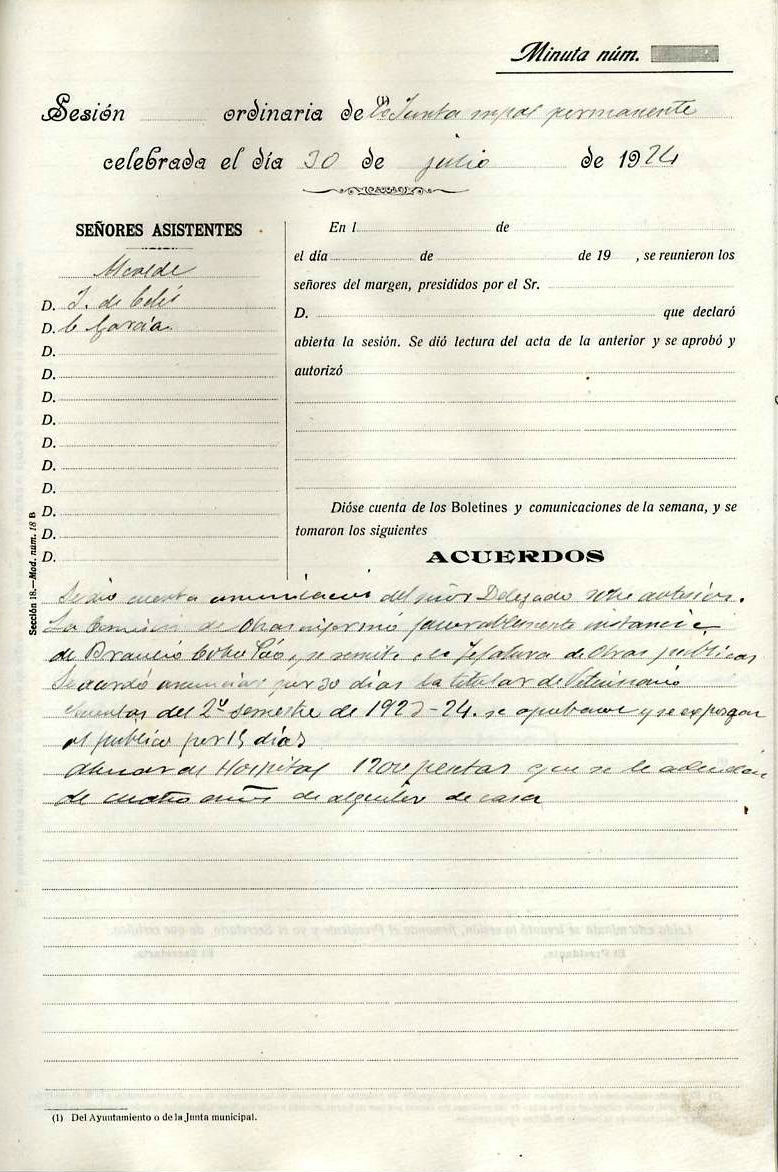 Minuta núm.
Sesión ordinaria de (1) la Junta mpal permanente
celebrada el día 30 de julio de 1924
SEÑORES ASISTENTES
Alcalde
D. J. de Celis
D. C García
D.
D.
D.
D.
D.
D.
D.
D.
D.
D.
En l de
el día de de 19 , se reunieron los
señores del margen, presididos por el Sr.
D. que declaró
abierta la sesión. Se dió lectura del acta de la anterior y se aprobó y
autorizó
Dióse cuenta de los Boletines y comunicaciones de la semana, y se
tomaron los siguientes
ACUERDOS
Se dio cuenta comunicación del señor Delegado sobre
La Comision de Obras informó favorablemente instancia
de Braulio Cobo y se remite a la Jefatura de Obras publicas
Se acordó anunciar por 30 dias la titular de Veterinario
Cuentas del 2º semestre de 1923-24. se aprobaron y se expongan
al publico por 15 dias
Hospital 1200 pesetas que se le adeudan
de cuatro años de alquiler de casa
Sección 18.—Mod. num. 18 B
(1) Del Ayuntamiento o de la Junta municipal.